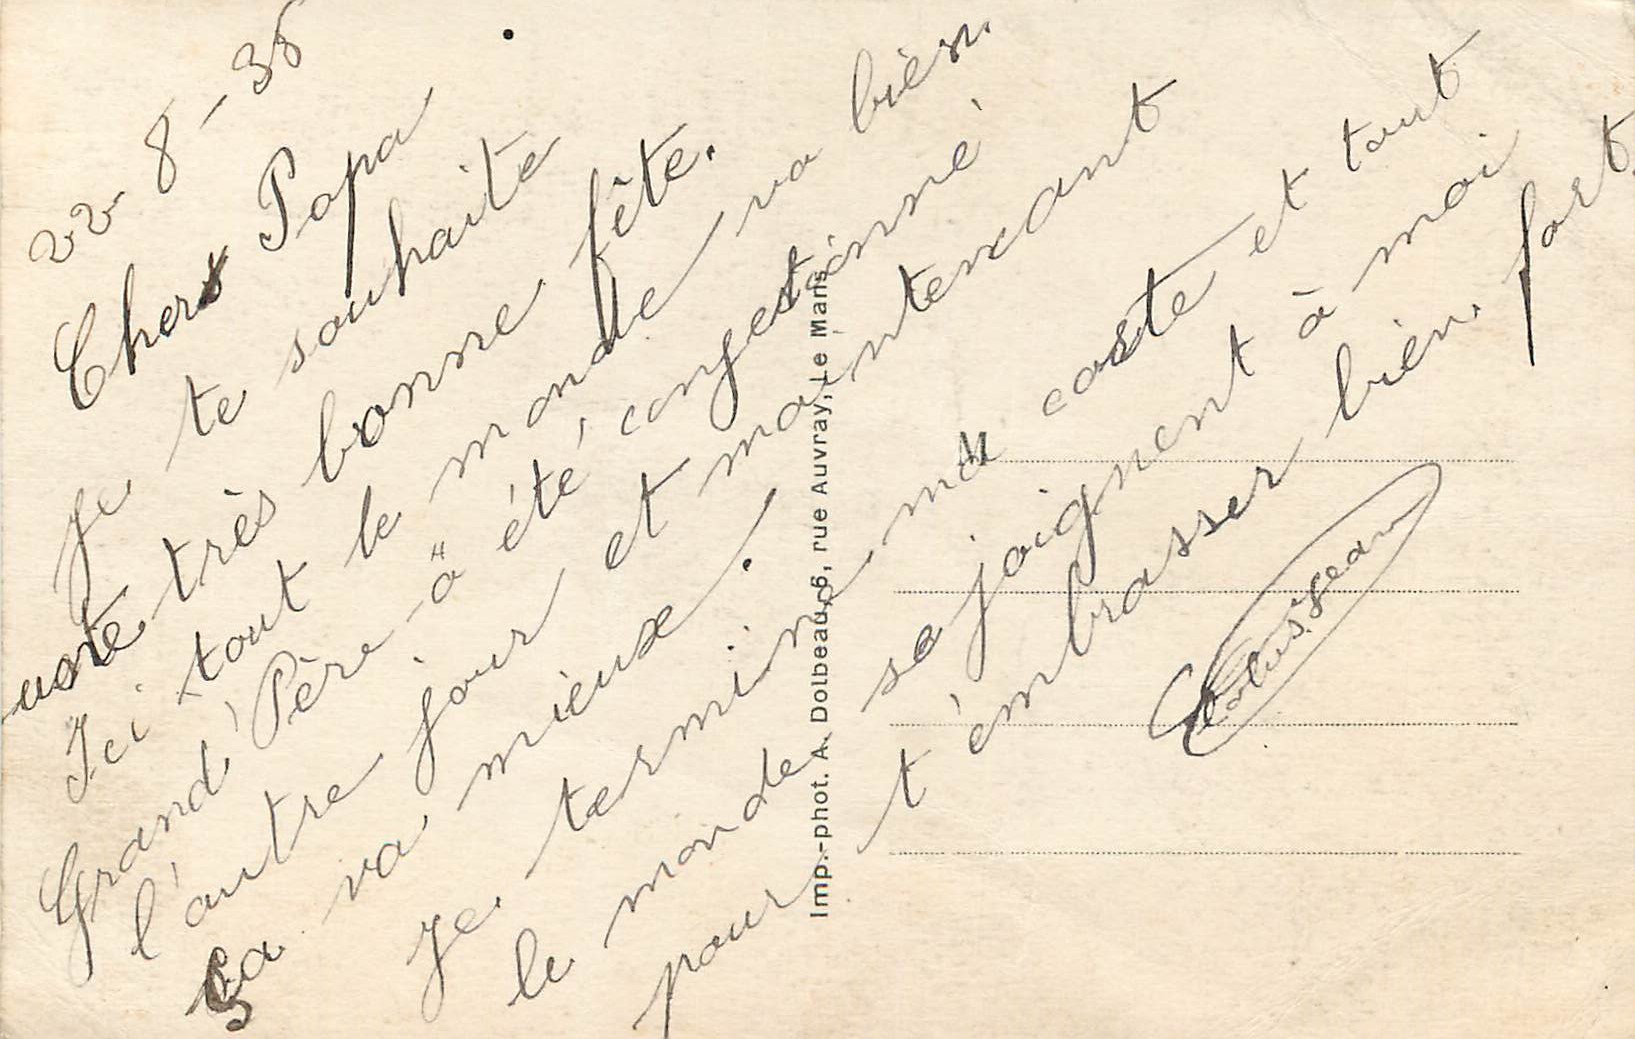 22-8-38
Cher Papa
Je te souhaite
une très bonne fête.
Ici tout le monde va bien.
Grand' Père a été congestionné
l'autre jour et maintenant
ça va mieux.
Je termine ma carte et tout
le monde se joignent à moi
pour t'embrasser bien fort.
Imp.-phot. A. Dolbeau, 6, rue Auvray, Le Mans